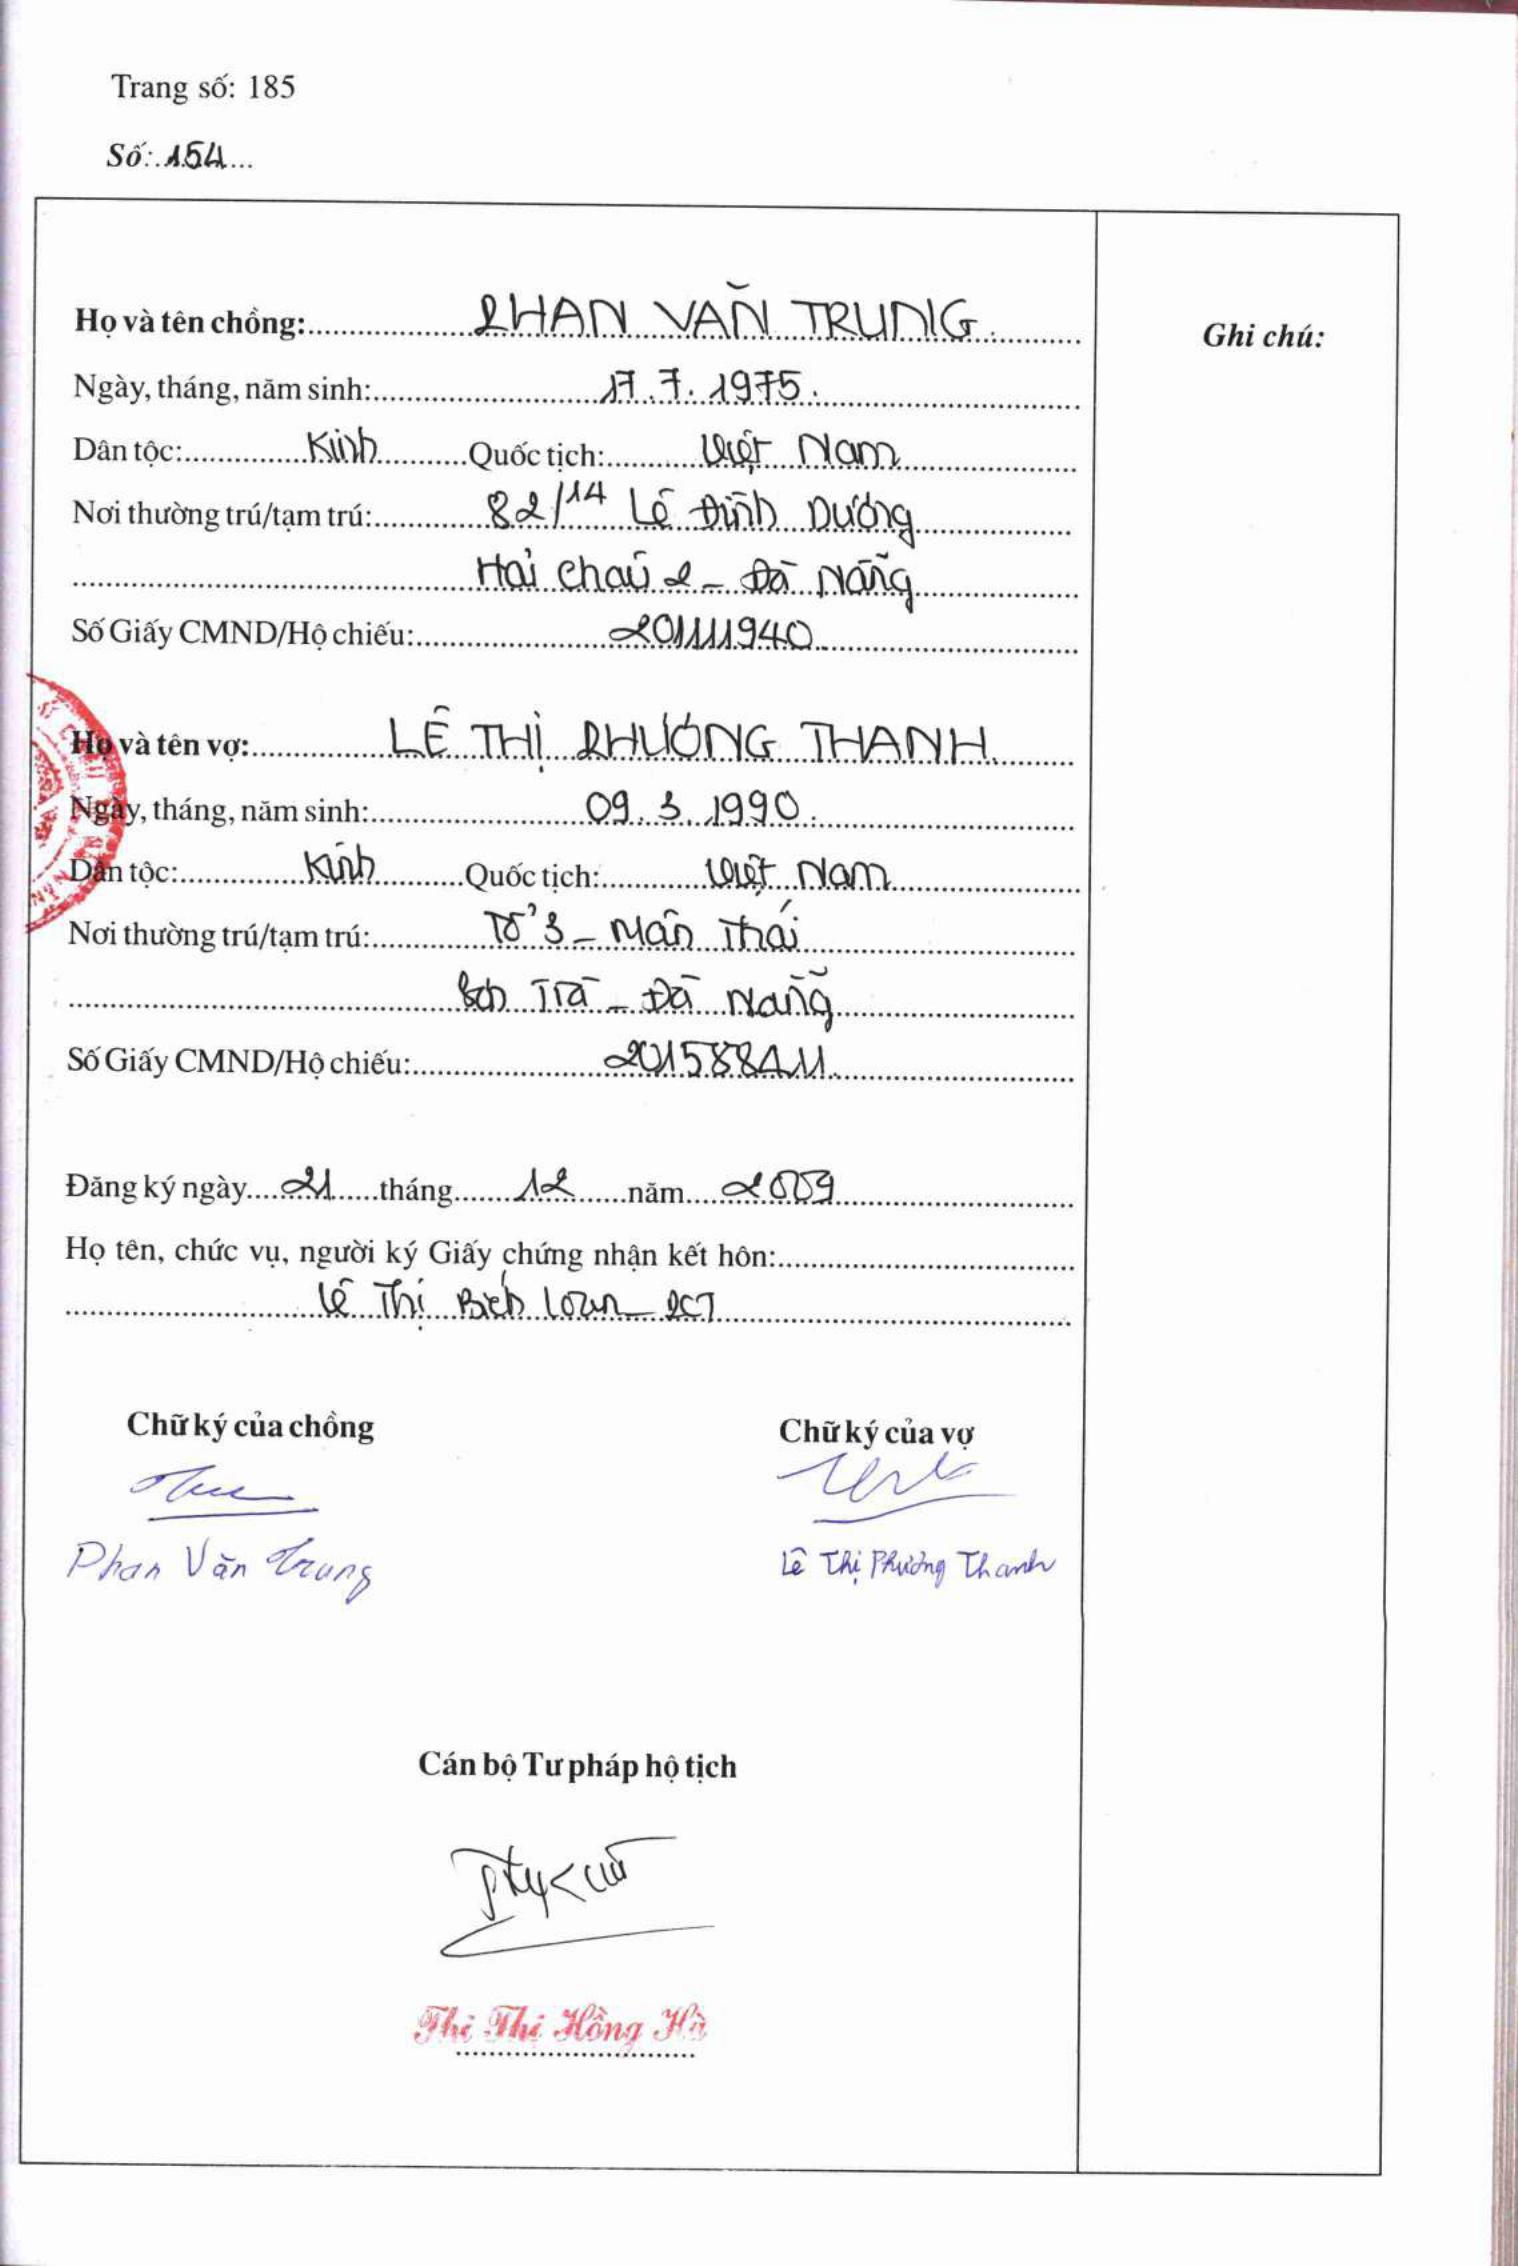 Trang số: 185
Số: 154
Họ và tên chồng: PHAN VĂN TRUNG
Ghi chú:
Ngày, tháng, năm sinh: 17.7.1975.
Dân tộc: Kinh Quốc tịch: Việt Nam
Nơi thường trú/tạm trú: 82/14 Lê Đình Dương
Hải Châu 2 - Đà Nẵng
Số Giấy CMND/Hộ chiếu: 201111940
Họ và tên vợ: LÊ THỊ PHƯƠNG THANH
Ngày, tháng, năm sinh: 09.3.1990.
Dân tộc: Kinh Quốc tịch: Việt Nam
Nơi thường trú/tạm trú: Tổ 3 - Mân Thái
Sơn Trà - Đà Nẵng
Số Giấy CMND/Hộ chiếu: 201588411
Đăng ký ngày 21 tháng 12 năm 2009
Họ tên, chức vụ, người ký Giấy chứng nhận kết hôn:
Lê Thị Bích Loan - PCT
Chữ ký của chồng
Chữ ký của vợ
Phan Văn Trung
Lê Thị Phương Thanh
Cán bộ Tư pháp hộ tịch
Thi Thị Hồng Hà